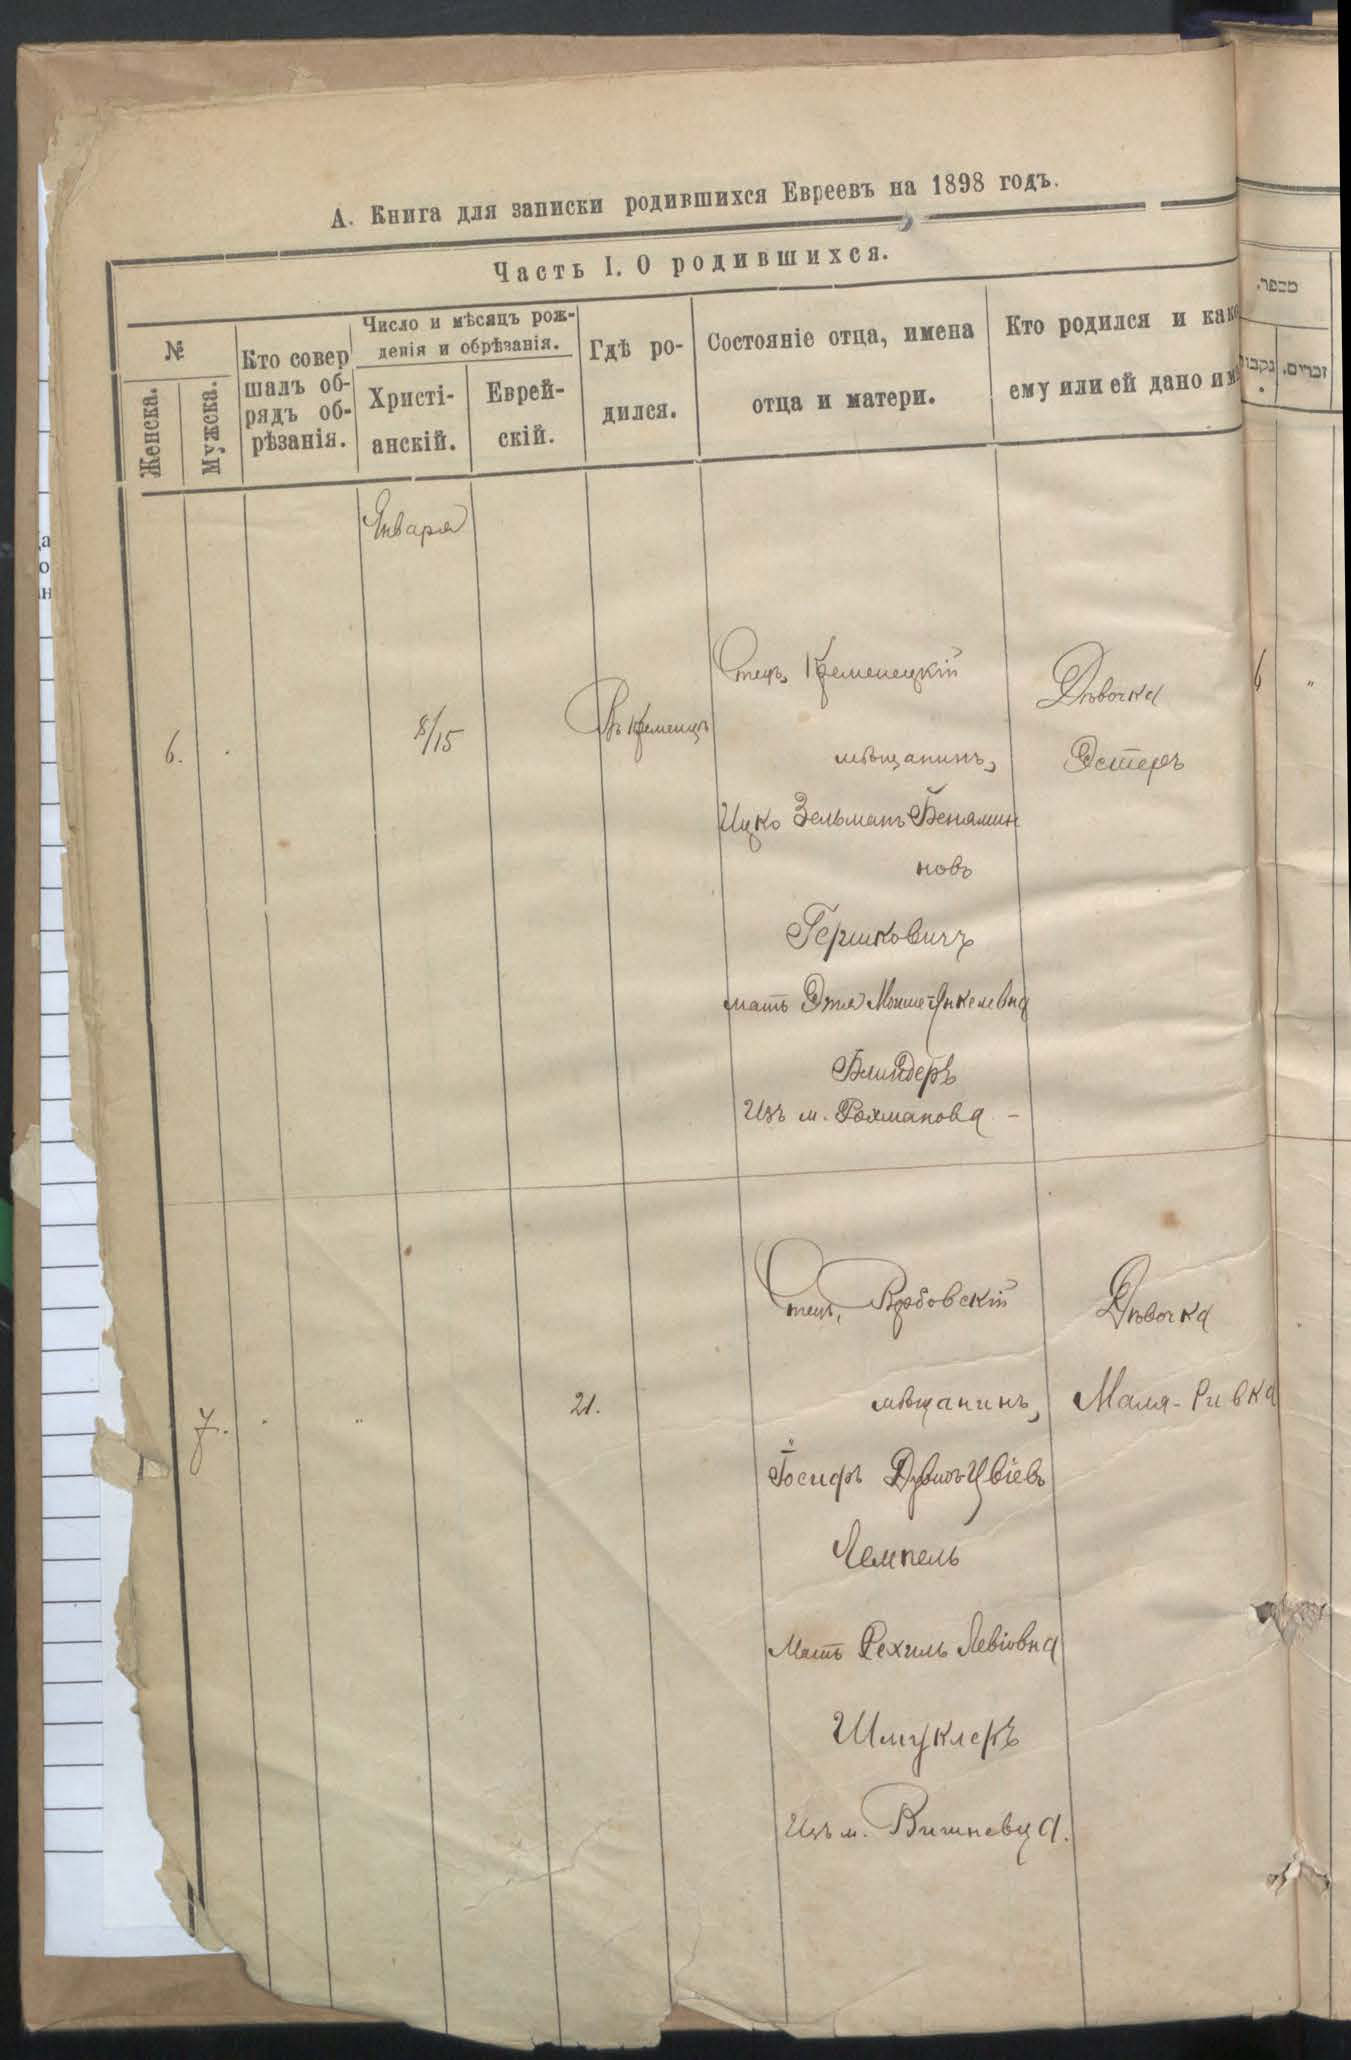 А. Книга для записки родившихся Евреевъ на 1898 годъ.
Часть I. О родившихся.
№
Женска.
Мужска.
Кто совер
шалъ об-
рядъ об-
рѣзанія.
Число и мѣсяцъ рож-
денія и обрѣзанія.
Христі-
анскій.
Еврей-
скій.
Гдѣ ро-
дился.
Состояніе отца, имена
отца и матери.
Кто родился и како
ему или ей дано им
מספר.
נקבות
זכרים.
Января
6.
8/15
Въ Кременцѣ
Отецъ, Кременецкій
мѣщанинъ,
Ицко Зельманъ Бенямин
новъ
Гершковичъ
мать Этля Мошие-Янкелевна
Блиндеръ
Изъ м. Рахманова -
Дѣвочка
Эстеръ
6 "
7.
"
21.
Отецъ,
мѣщанинъ,
Іосифъ Цвіевъ
Темпель
Мать Рехиль Левіовна
Шмуклеръ
Изъ м. Вишневца.
Дѣвочка
Маля-Ривка